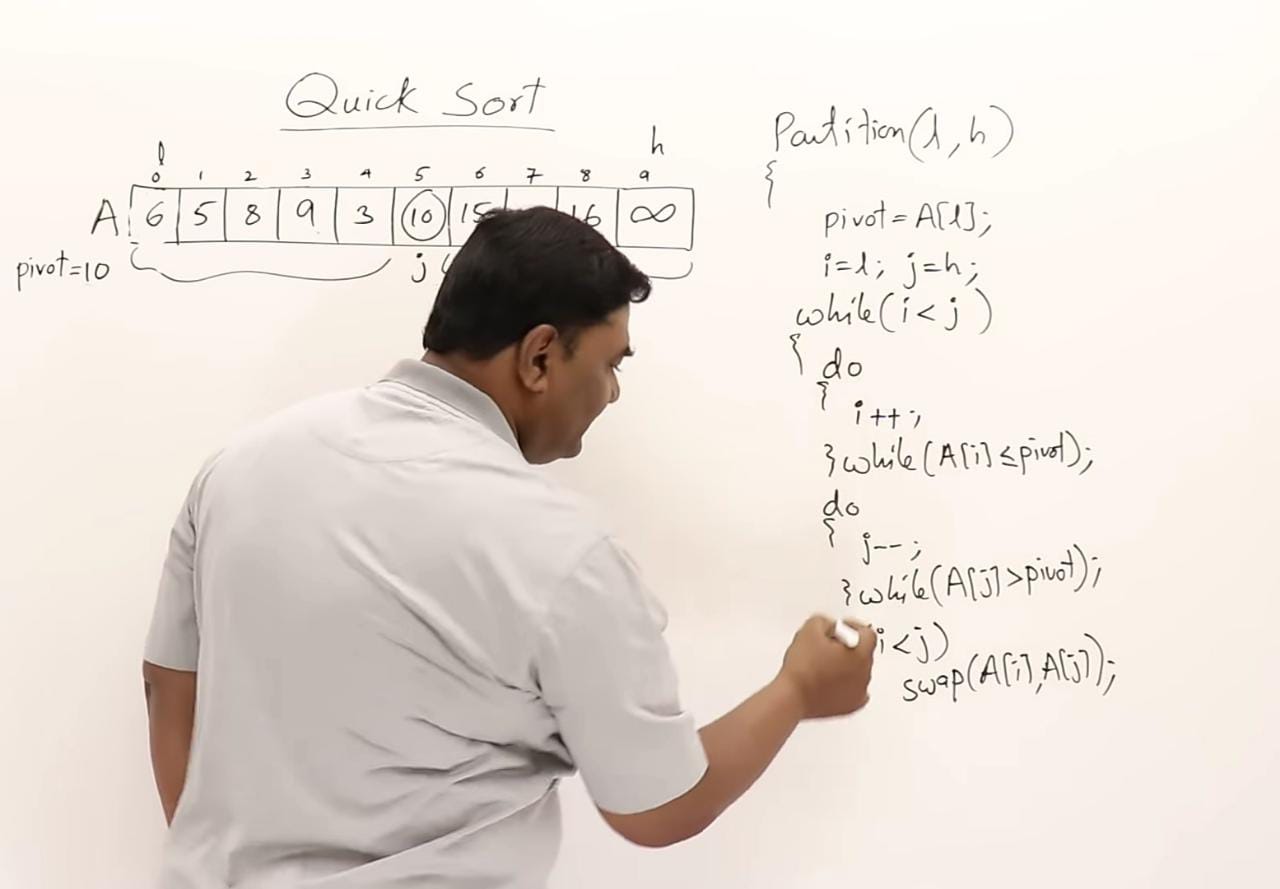 Quick Sort
l h
0 1 2 3 4 5 6 7 8 9
A 6 5 8 9 3 10 15 16 ∞
pivot=10
j
Partition(l,h)
{
pivot=A[l];
i=l; j=h;
while(i<j)
{ do
{
i++;
}while(A[i]≤pivot);
do
{
j--;
}while(A[j]>pivot);
i<j)
swap(A[i],A[j]);